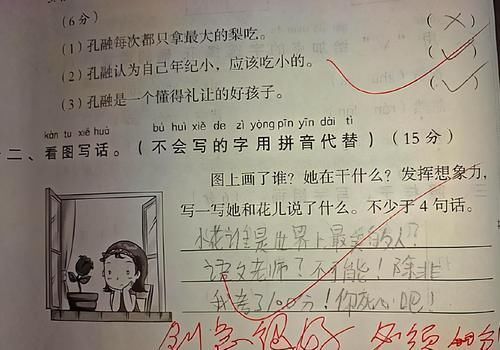 (6分)
(1) 孔融每次都只拿最大的梨吃。 (×)
(2) 孔融认为自己年纪小,应该吃小的。 (✓)
(3) 孔融是一个懂得礼让的好孩子。 (✓)
kàn tú xiě huà bú huì xiě de zì yòng pīn yīn dài tì
二、看图写话。(不会写的字用拼音代替)(15分)
图上画了谁?她在干什么?发挥想象力,
写一写她和花儿说了什么。不少于4句话。
小花谁是世界上最美的人?
语文老师?不可能!除非
我考了100分!你死心吧!!